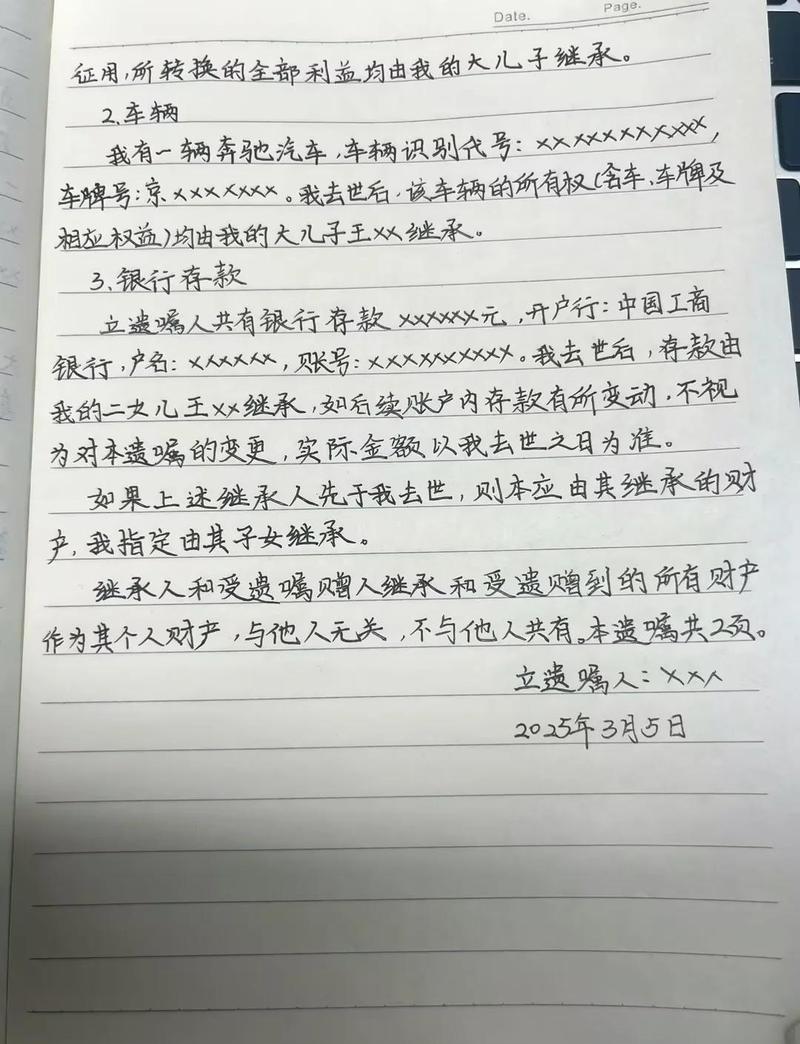 Date.
Page.
征用,所转换的全部利益均由我的大儿子继承。
2.车辆
我有一辆奔驰汽车,车辆识别代号:×××××××××××,
车牌号:京×××××××。我去世后,该车辆的所有权(含车、车牌及
相应权益)均由我的大儿子王××继承。
3.银行存款
立遗嘱人共有银行存款××××××元,开户行:中国工商
银行,户名:××××××,账号:××××××××××。我去世后,存款由
我的二女儿王××继承,如后续账户内存款有所变动,不视
为对本遗嘱的变更,实际金额以我去世之日为准。
如果上述继承人先于我去世,则本应由其继承的财
产,我指定由其子女继承。
继承人和受遗嘱赠人继承和受遗赠到的所有财产
作为其个人财产,与他人无关,不与他人共有。本遗嘱共2页。
立遗嘱人:×××
2025年3月5日